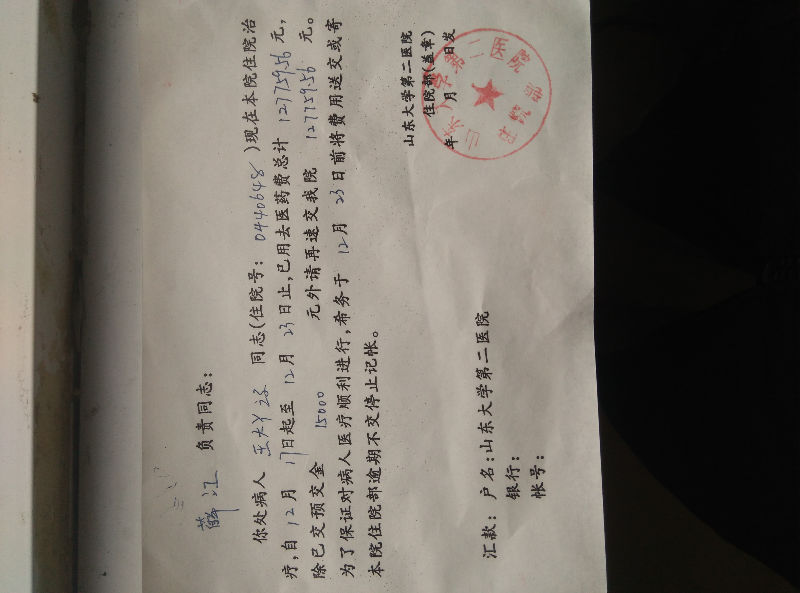 薛江 负责同志：
你处病人 王大丫 同志（住院号： 0440648 ）现在本院住院治
疗，自 12 月 17 日起至 12 月 23 日止，已用去医药费总计 127759.56 元，
除已交预交金 15000 元外请再速交我院 127759.56 元。
为了保证对病人医疗顺利进行，希务于 12 月 23 日前将费用送交或寄
本院住院部逾期不交停止记帐。
山东大学第二医院
住院部（盖章）
年 月 日发
汇款： 户 名：山东大学第二医院
银行：
帐号：
山东大学第二医院